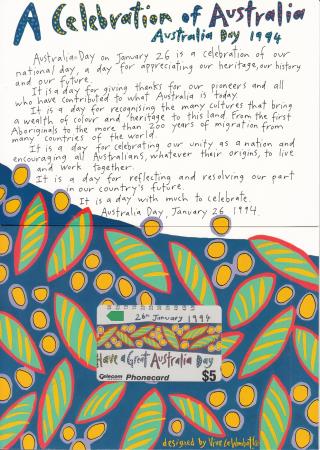 A Celebration of Australia
Australia Day 1994
Australia Day on January 26 is a celebration of our
national day, a day for appreciating our heritage, our history
and our future.
It is a day for giving thanks for our pioneers and all
who have contributed to what Australia is today.
It is a day for recognising the many cultures that bring
a wealth of colour and heritage to this land from the first
Aboriginals to the more than 200 years of migration from
many countries of the world.
It is a day for celebrating our unity as a nation and
encouraging all Australians, whatever their origins, to live
and work together.
It is a day for reflecting and resolving our part
in our country's future.
It is a day with much to celebrate.
Australia Day, January 26 1994.
26th January 1994
Have a Great Australia Day
Telecom Phonecard $5
designed by